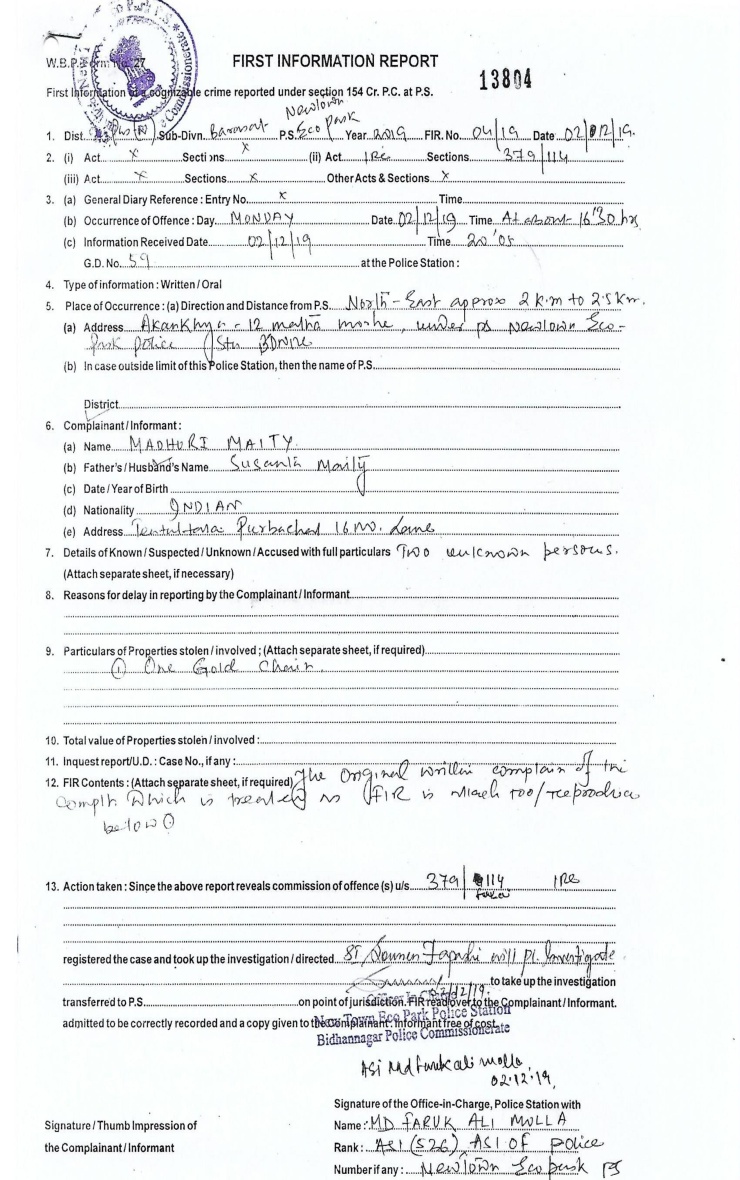 W.B.P. Form No. 27
FIRST INFORMATION REPORT
13804
First Information of a cognizable crime reported under section 154 Cr. P.C. at P.S.
Newtown
1. Dist. Sub-Divn. Barasat P.S. Eco park Year 2019 FIR. No. 04/19 Date 02/12/19.
2. (i) Act x Sections x (ii) Act IPC Sections 379/114
(iii) Act x Sections x Other Acts & Sections x
3. (a) General Diary Reference : Entry No. x Time
(b) Occurrence of Offence : Day MONDAY Date 02/12/19 Time At about 16'30 hrs
(c) Information Received Date 02/12/19 Time 20'05
G.D. No. 59 at the Police Station :
4. Type of information : Written / Oral
5. Place of Occurrence : (a) Direction and Distance from P.S. North-East approx 2 k.m to 2.5 km.
(a) Address Akankhya - 12 matha moshe, under ps Newtown Eco-
park police Stn
(b) In case outside limit of this Police Station, then the name of P.S.
District
6. Complainant / Informant :
(a) Name MADHURI MAITY
(b) Father's / Husband's Name Susanta Maity
(c) Date / Year of Birth
(d) Nationality INDIAN
(e) Address Purbachal 16 No. Lane
7. Details of Known / Suspected / Unknown / Accused with full particulars Two unknown persons.
(Attach separate sheet, if necessary)
8. Reasons for delay in reporting by the Complainant / Informant
9. Particulars of Properties stolen / involved ; (Attach separate sheet, if required)
① One Gold Chain
10. Total value of Properties stolen / involved :
11. Inquest report/U.D. : Case No., if any :
12. FIR Contents : (Attach separate sheet, if required) The Original written complain of the
complt which is treated as FIR is
below
13. Action taken : Since the above report reveals commission of offence (s) u/s. 379/114 IPC
registered the case and took up the investigation / directed SI Soumen will pl. Investigate
to take up the investigation
02/12/19.
transferred to P.S. on point of jurisdiction. FIR read over to the Complainant / Informant.
admitted to be correctly recorded and a copy given to the complainant. Informant free of cost.
New Town Eco Park Police Station
Bidhannagar Police Commissionerate
ASI Md Faruk ali molla
02.12.19.
Signature of the Office-in-Charge, Police Station with
Signature / Thumb Impression of
the Complainant / Informant
Name : MD FARUK ALI MOLLA
Rank : ASI (526), ASI OF police
Number if any : Newtown Eco park PS